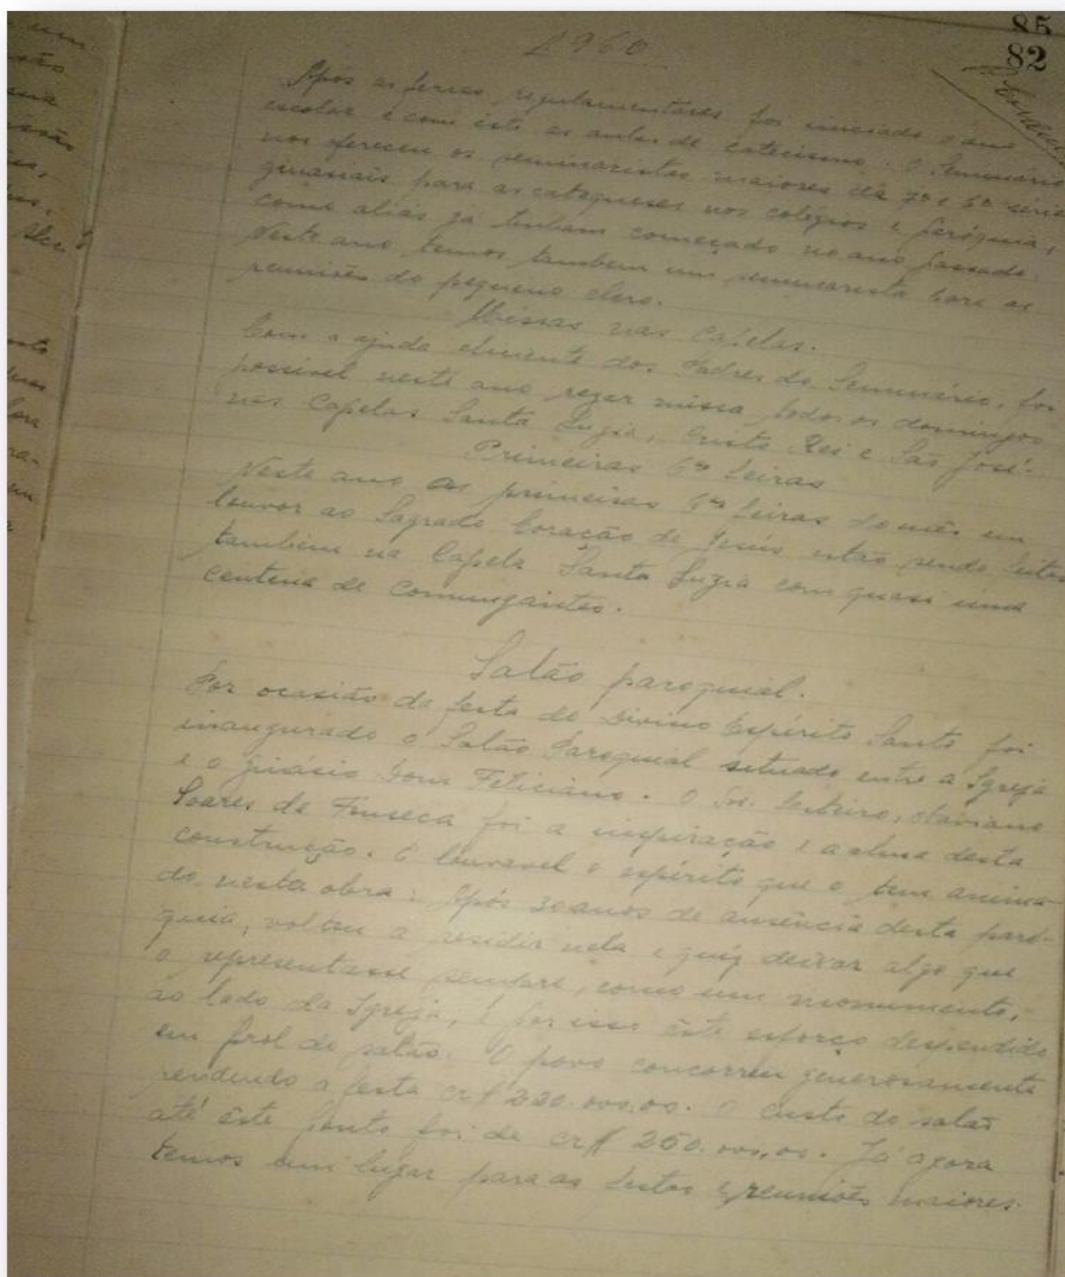 85
82
1960
Após as ferias regulamentares foi iniciado o ano
escolar e com êste as aulas de catecismo. O Seminário
nos ofereceu os seminaristas maiores da 7ª e 6ª série
ginasiais para as catequeses nos colégios e paróquia,
como aliás já tinham começado no ano passado.
Neste ano temos tambem um seminarista para as
reuniões do pequeno clero.
Missas nas Capelas.
Com a ajuda dos Padres do Seminário, foi
possivel neste ano rezar missa todos os domingos
nas Capelas Santa Luzia, Cristo Rei e São José.
Primeiras 6as feiras
Neste ano as primeiras 6as feiras do mês em
louvor ao Sagrado Coração de Jesús estão sendo feitas
tambêm na Capela Santa Luzia com quasi uma
centena de comungantes.
Salão paroquial.
Por ocasião da festa do Divino Espírito Santo foi
inaugurado o Salão Paroquial situado entre a Igreja
e o ginásio Dom Feliciano. O Snr. festeiro, Otaviano
Soares da Fonseca foi a inspiração e a alma desta
construção. É louvavel o espírito que o tem anima-
do nesta obra: Após 30 anos de ausência desta paró-
quia, voltou a residir nela e quiz deixar algo que
o representasse sempre, como um monumento,
ao lado da Igreja, é por isso êste esforço despendido
em prol do salão. O povo concorreu generosamente
rendendo a festa cr$ 220.000,00. O custo do salão
até êste ponto foi de cr$ 250.000,00. Já agora
temos um lugar para as festas e reuniões maiores.